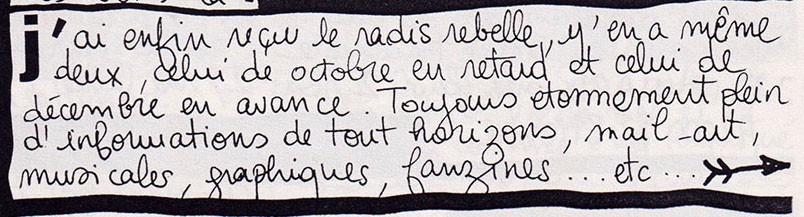 j'ai enfin reçu le radis rebelle, y'en a même
deux, celui de octobre en retard et celui de
décembre en avance. Toujours etonnement plein
d'informations de tout horizons, mail-art,
musicales, graphiques, fanzines ... etc ...